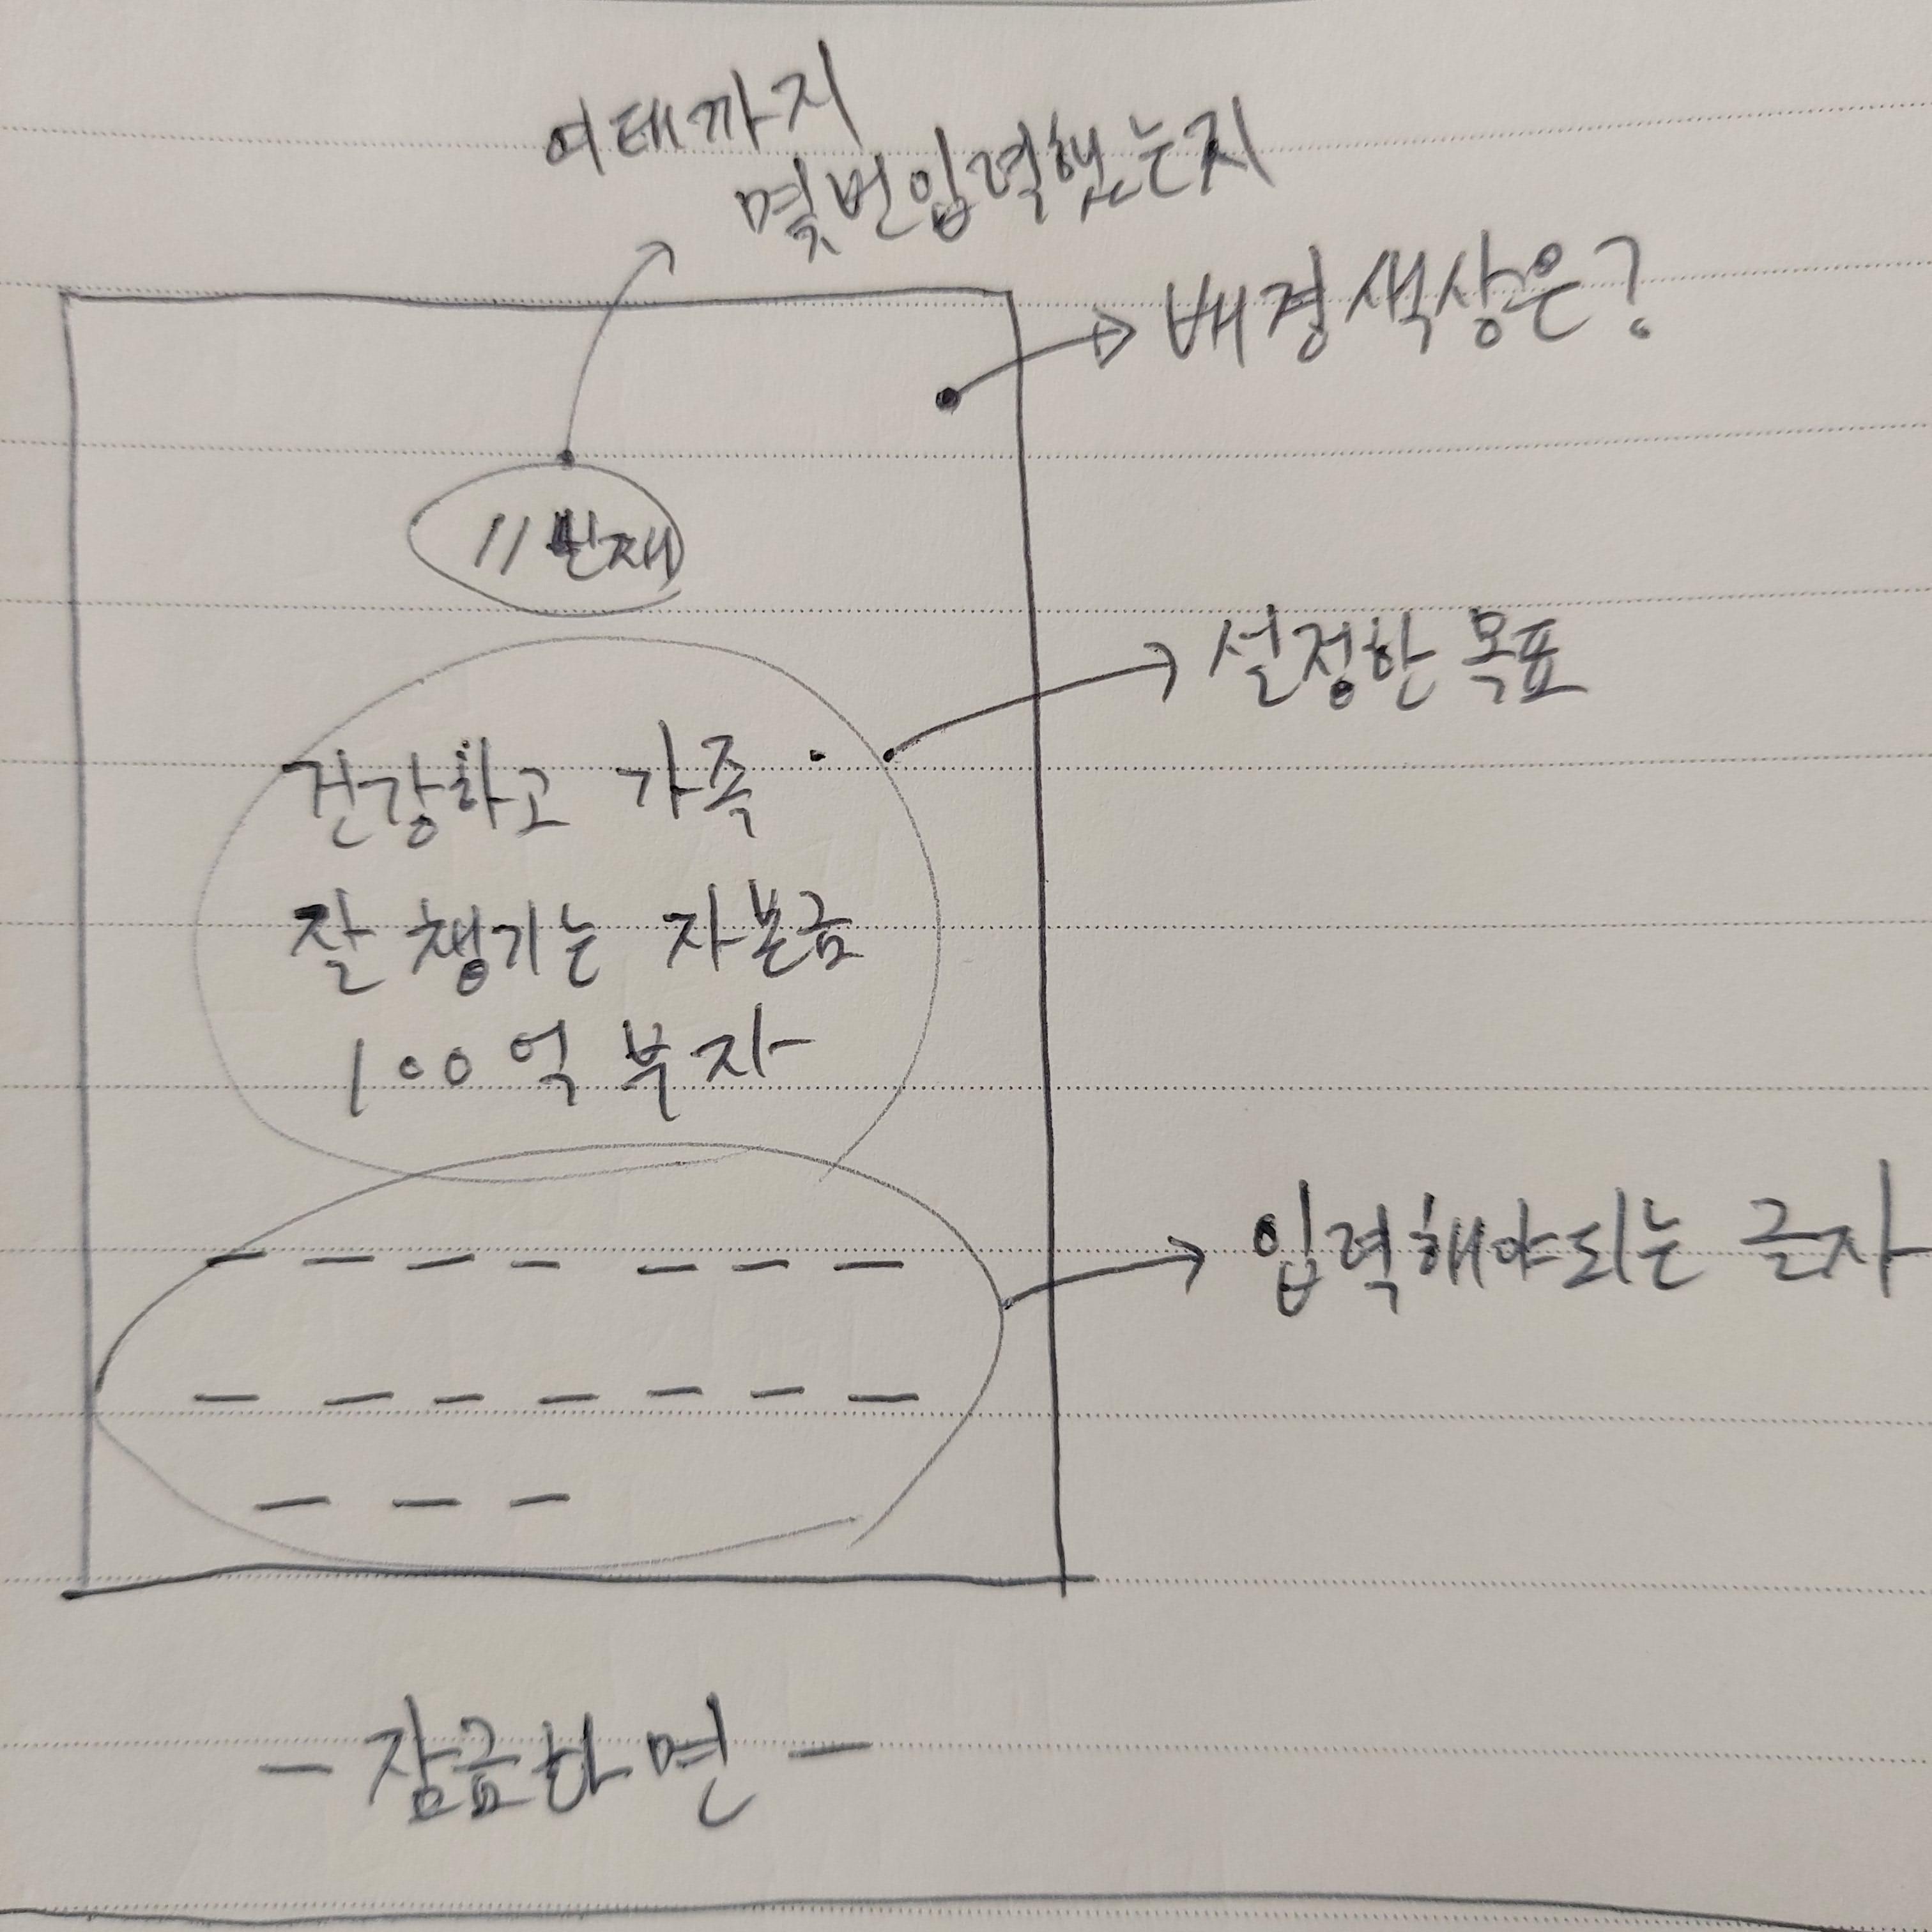 여태까지
몇번입력했는지
배경색상은?
11번째
설정한 목표
건강하고 가족
잘 챙기는 자본금
100억 부자
입력해야되는 글자
- 잠금화면 -